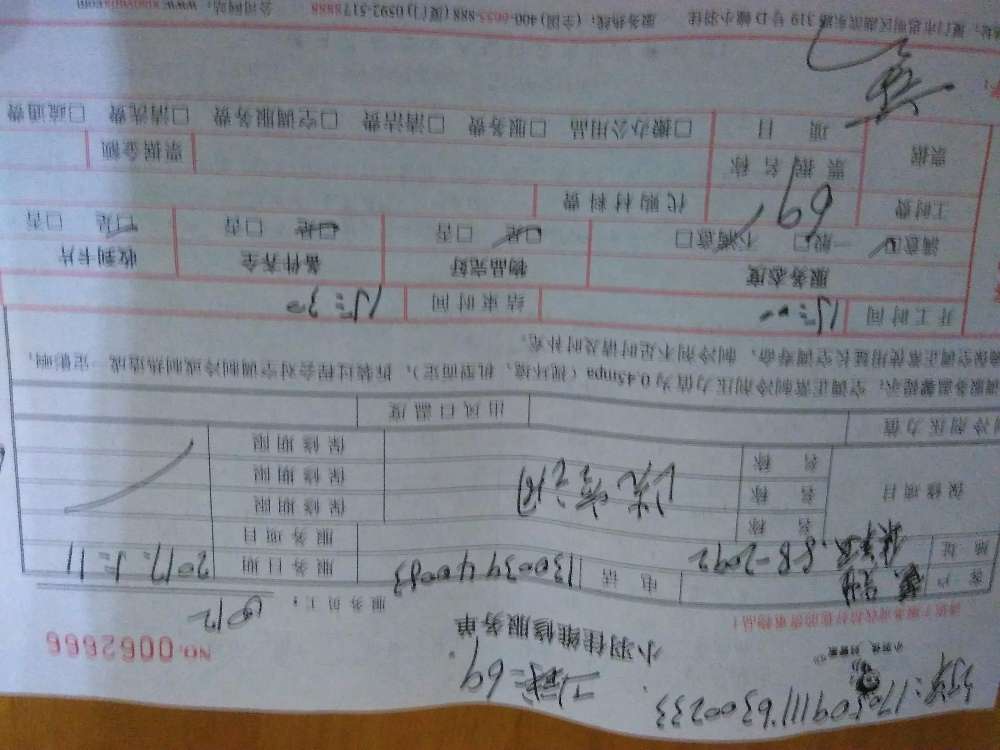 170509111630023​3
工费:69.
小羽佳维修服务单
NO.0062666
请于服务前收拾好您的贵重物品!
服务员工:
客户
电话 13003940083
服务日期 2017.5.11
地址 5B-2092
服务项目
保修项目
名称 保修期限
名称 洗空调 保修期限
名称 保修期限
制冷剂压力值 出风口温度
调服务温馨提示:空调正常制冷剂压力值为0.45mpa(视环境、机型而定),拆装过程会对空调制冷或制热造成一定影响,
确保空调正常使用延长空调寿命,制冷剂不足时请及时补充。
开工时间 15:00 结束时间 15:30
服务态度 物品完好 备件齐全 收到卡片
满意☑ 一般□ 不满意□ ☑是 □否 ☑是 □否 ☑是 □否
工时费 69 代购材料费
票据 票据名称 票据金额
项目 □搬办公用品 □服务费 □清洁费 □空调服务费 □清洗费 □疏通费
厦门市思明区湖滨东路319号D幢小羽佳 服务热线:(全国)400-6655-888(厦门)0592-5178888 公司网站: